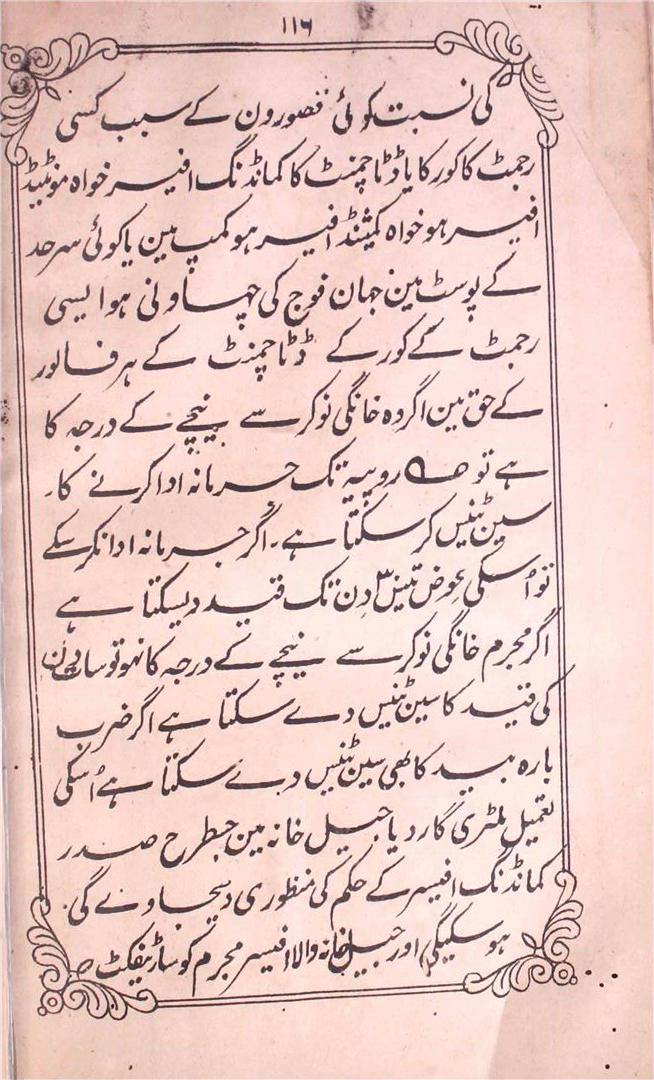 ۱۱۶
کی نسبت کوئی قصورون کے سبب کسی
رجمٹ کا کور کا یا ڈٹاچمنٹ کا کمانڈنگ افیسر خواہ مونٹیڈ
افیسر ہو خواہ کمشنڈ افیسر ہو کمپ مین یا کوئی سرحد
کے پوسٹ مین جہان فوج کی چہاونی ہو ایسی
رجمٹ کے کور کے ڈٹاچمنٹ کے ہر فالور
کے حق مین اگر وہ خانگی نوکر سے نیچے کے درجہ کا
ہے تو روپیہ تک جرمانہ ادا کرنے کا۔
سین ٹنیس کر سکتا ہے۔ اگر جرمانہ ادا نکر سکے
تو اُسکی عوض تیس ۳۰ دن تک قید دیسکتا ہے
اگر مجرم خانگی نوکر سے نیچے کے درجہ کا نہو تو سات دن
کی قید کا سین ٹنیس دے سکتا ہے اگر ضرب
بارہ بید کا بھی سین ٹنیس دے سکتا ہے اُسکی
تعمیل ملٹری گارد یا جیل خانہ مین جسطرح صدر
کمانڈنگ افیسر کے حکم کی منظوری دیجاوے گی۔
ہو سکیگی اور جیل خانہ والا افیسر مجرم کو سارٹیفکٹ